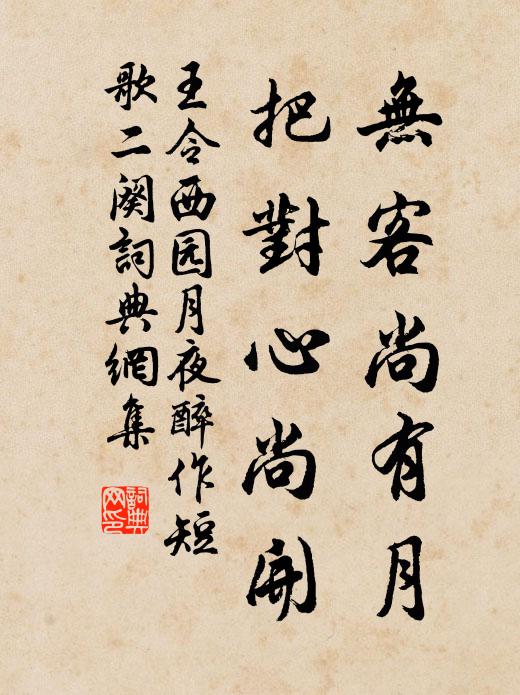 無客尚有月
把對心尚開
王令西园月夜醉作短
歌二闋詞典網集
詞典
网印